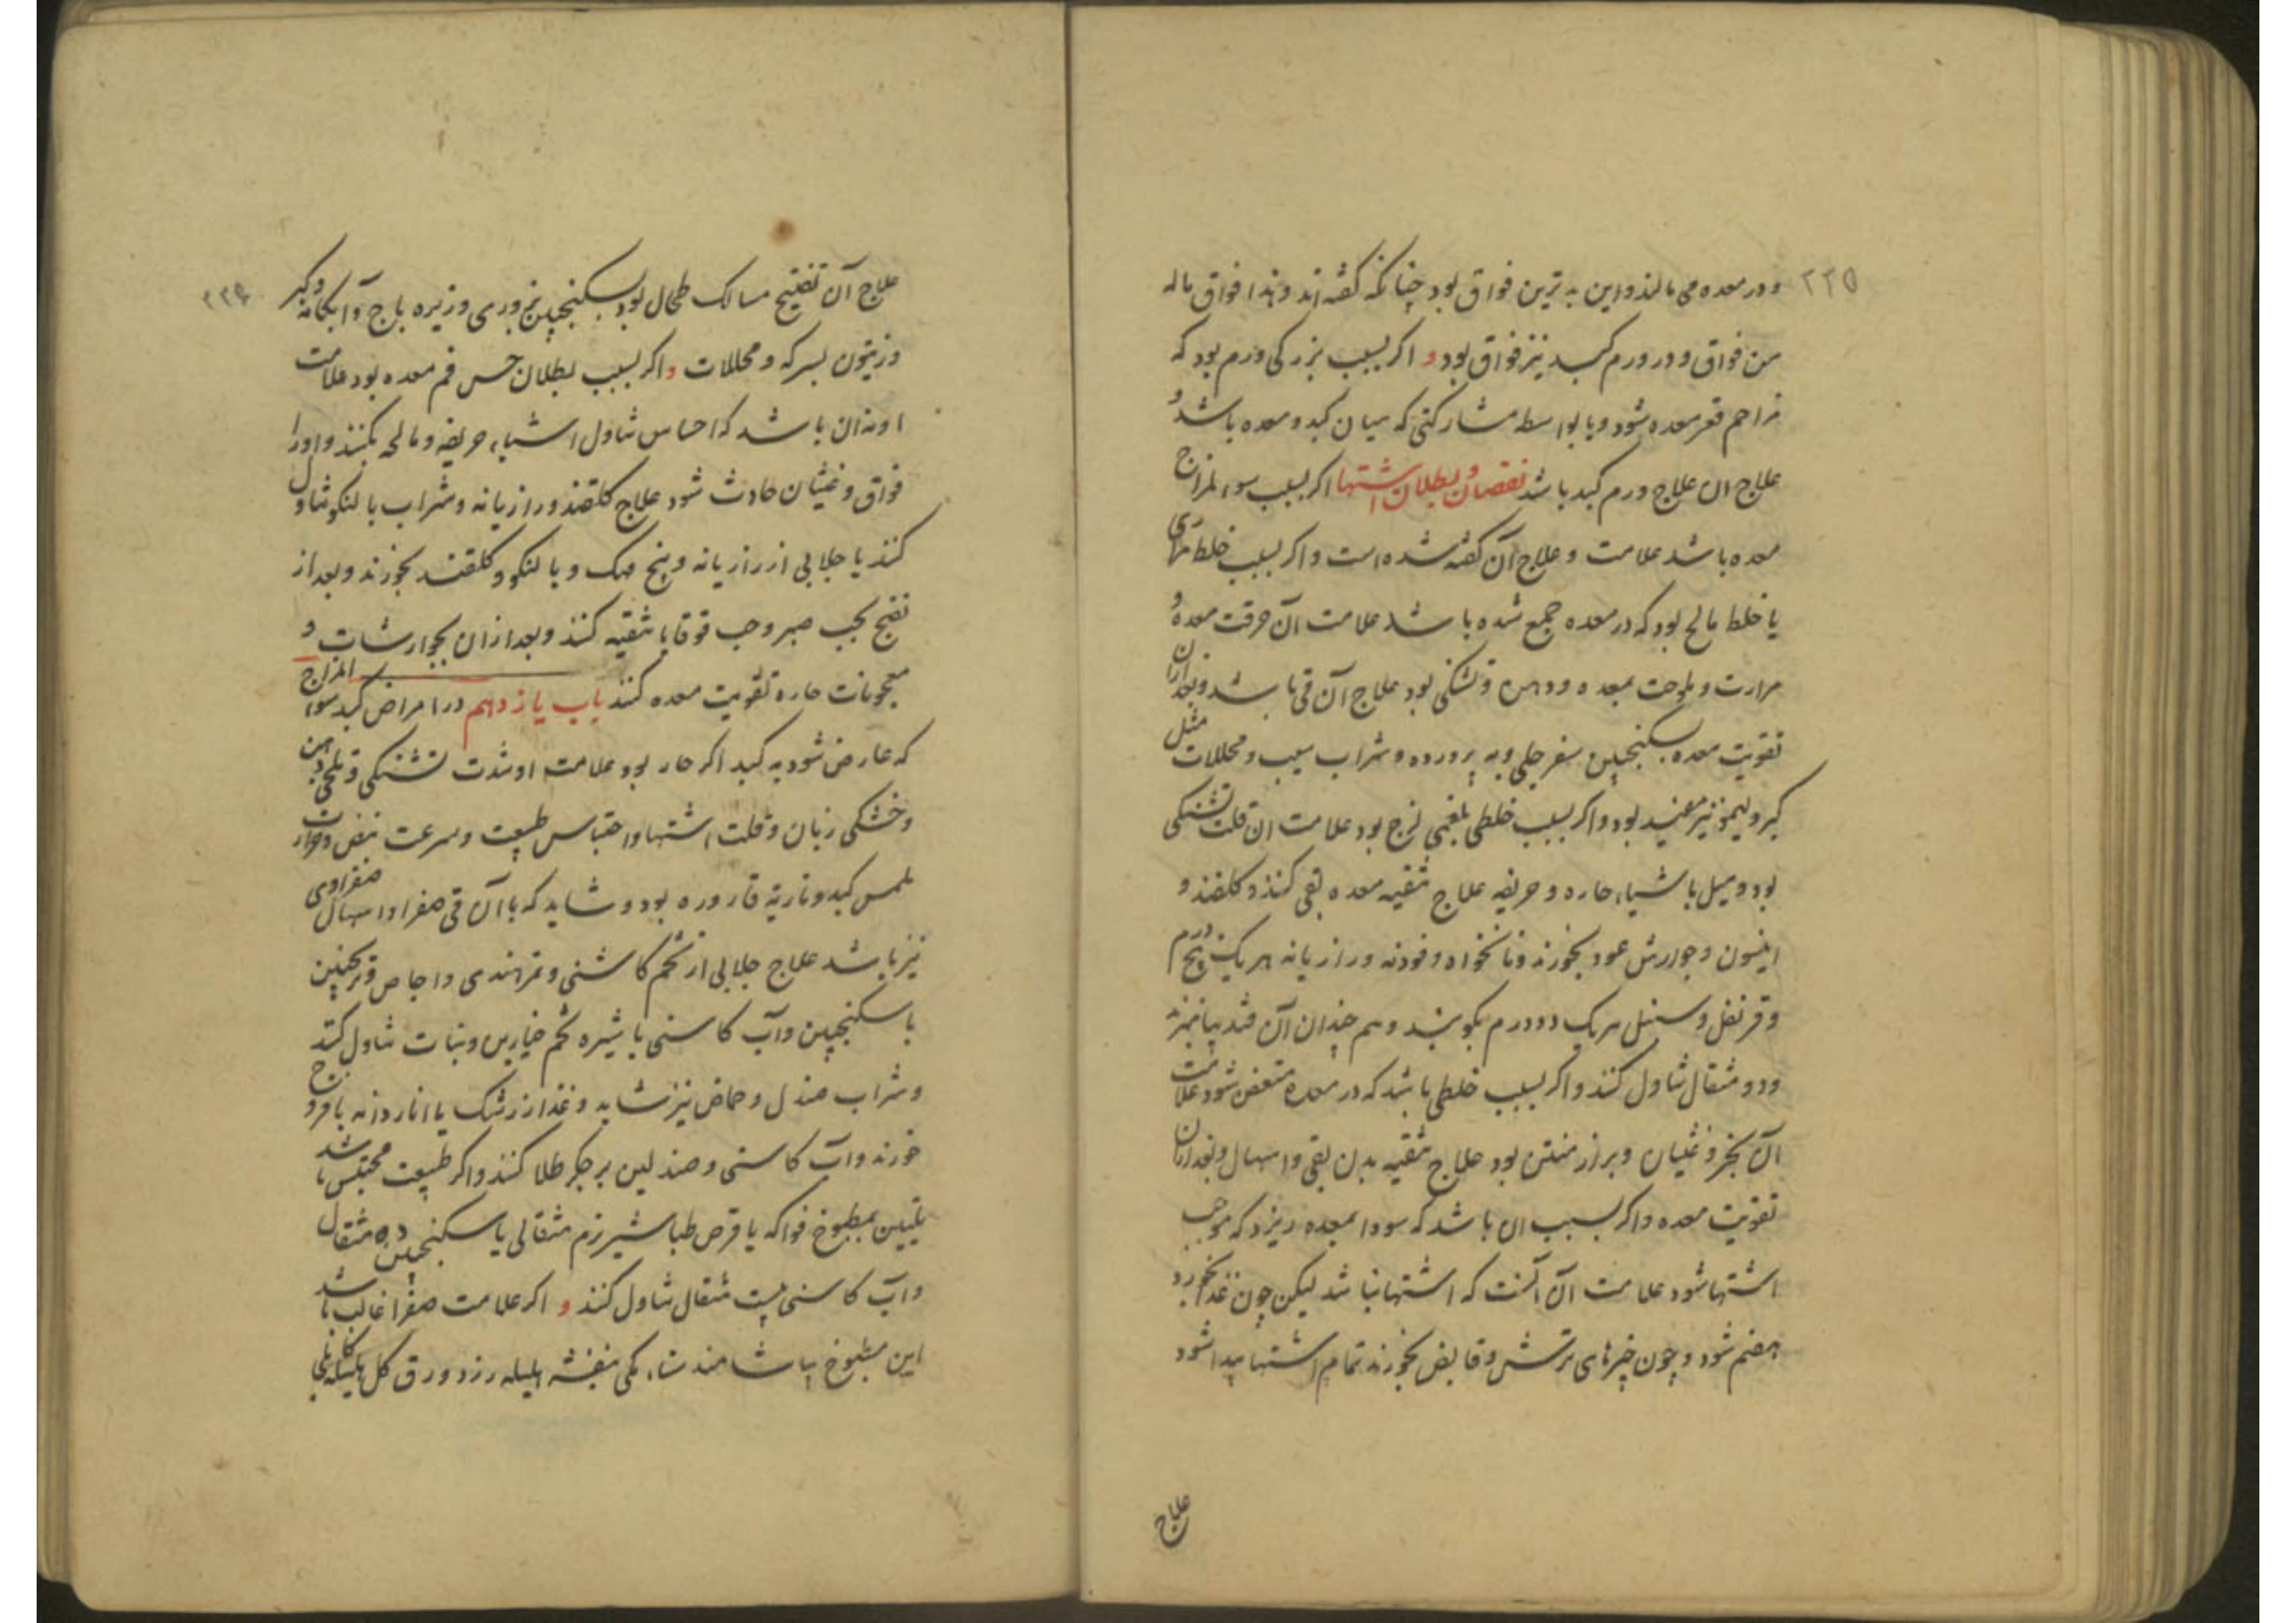 ۲۲۵
و در معده می مالند و این بدترین فواق بود چنانکه گفته اند و هذا فواق ماله
من فواق و در ورم کبد نیز فواق بود و اگر بسبب بزرگی ورم بود که
مزاحم قعر معده شود و یا بواسطه مشارکتی که میان کبد و معده باشد و
علاج ان علاج ورم کبد باشد نقصان و بطلان اشتها اگر بسبب سوء المزاج
معده باشد علامت و علاج آن گفته شده است و اگر بسبب خلط مراری
یا خلط مالح بود که در معده جمع شده باشد علامت آن حرقت معده و
مرارت و ملوحت بمعده و دهن و تشنکی بود علاج آن قی باشد و بعد ازان
تقویت معده بسکنجبین سفرجلی و به پرورده و شراب سیب و مخللات مثل
کبر و لیمو نیز مفید بود و اگر بسبب خلطی بلغمی لزج بود علامت ان قلت تشنکی
بود و میل باشیاء حاره و حریفه علاج تنقیه معده بقی کنند و کلقند و
انیسون و جوارش عود بخورند و نانخواه و فودنه و رازیانه هر یک پنج درم
و قرنفل و سنبل هر یک دو درم بکوبند و هم چندان آن قند بیامیزند
و دو مثقال تناول کنند و اگر بسبب خلطی باشد که در معده متعفن شود علامت
آن بخر و غثیان و براز منتن بود علاج تنقیه بدن بقی و اسهال و بعد ازان
تقویت معده و اگر بسبب ان باشد که سودا بمعده ریزد که موجب
اشتها شود علامت آن آنست که اشتها نباشد لیکن چون غذا بخورد
هضم شود و چون چیزهای ترش و قابض بخورند تمام اشتها پیدا شود
علاج
۲۲۶
علاج آن تفتیح مسالک طحال بود بسکنجبین بزوری و زیره باج و آبکامه و کبر
و زیتون بسرکه و مخللات و اگر بسبب بطلان حس فم معده بود علامت
او ندان باشد که احساس تناول اشیاء حریفه و مالحه نکنند و او را
فواق و غثیان حادث شود علاج کلقند و رازیانه و شراب بالنکو تناول
کنند یا جلابی از رازیانه و بیخ مهک و بالنکو و کلقند بخورند و بعد از
نضج بحب صبر و حب قوقایا تنقیه کنند و بعد از ان بجوارشات و
معجونات حاره تقویت معده کنند باب یازدهم در امراض کبد سوء المزاج
که عارض شود به کبد اگر حار بود علامت او شدت تشنکی و تلخی دهن
و خشکی زبان و قلت اشتها و احتباس طبیعت و سرعت نبض و حرارت
ملمس کبد و ناریة قاروره بود و شاید که با آن قی صفرا و اسهال صفراوی
نیز باشد علاج جلابی از تخم کاسنی و تمر هندی و اجاص و ترنجبین
با سکنجبین و آب کاسنی با شیره تخم خیارین و نبات تناول کنند
و شراب صندل و حماض نیز شاید و غذا زرشک یا اناردانه با فروج
خورند و آب کاسنی و صندلین بر جگر طلا کنند و اگر طبیعت محتبس باشد
تلیین بمطبوخ فواکه یا قرص طباشیر نرم مثقالی با سکنجبین ده مثقال
و آب کاسنی بیست مثقال تناول کنند و اگر علامت صفرا غالب باشد
این مطبوخ بیاشامند سناء مکی بنفشه هلیله زرد ورق کل هلیله کابلی